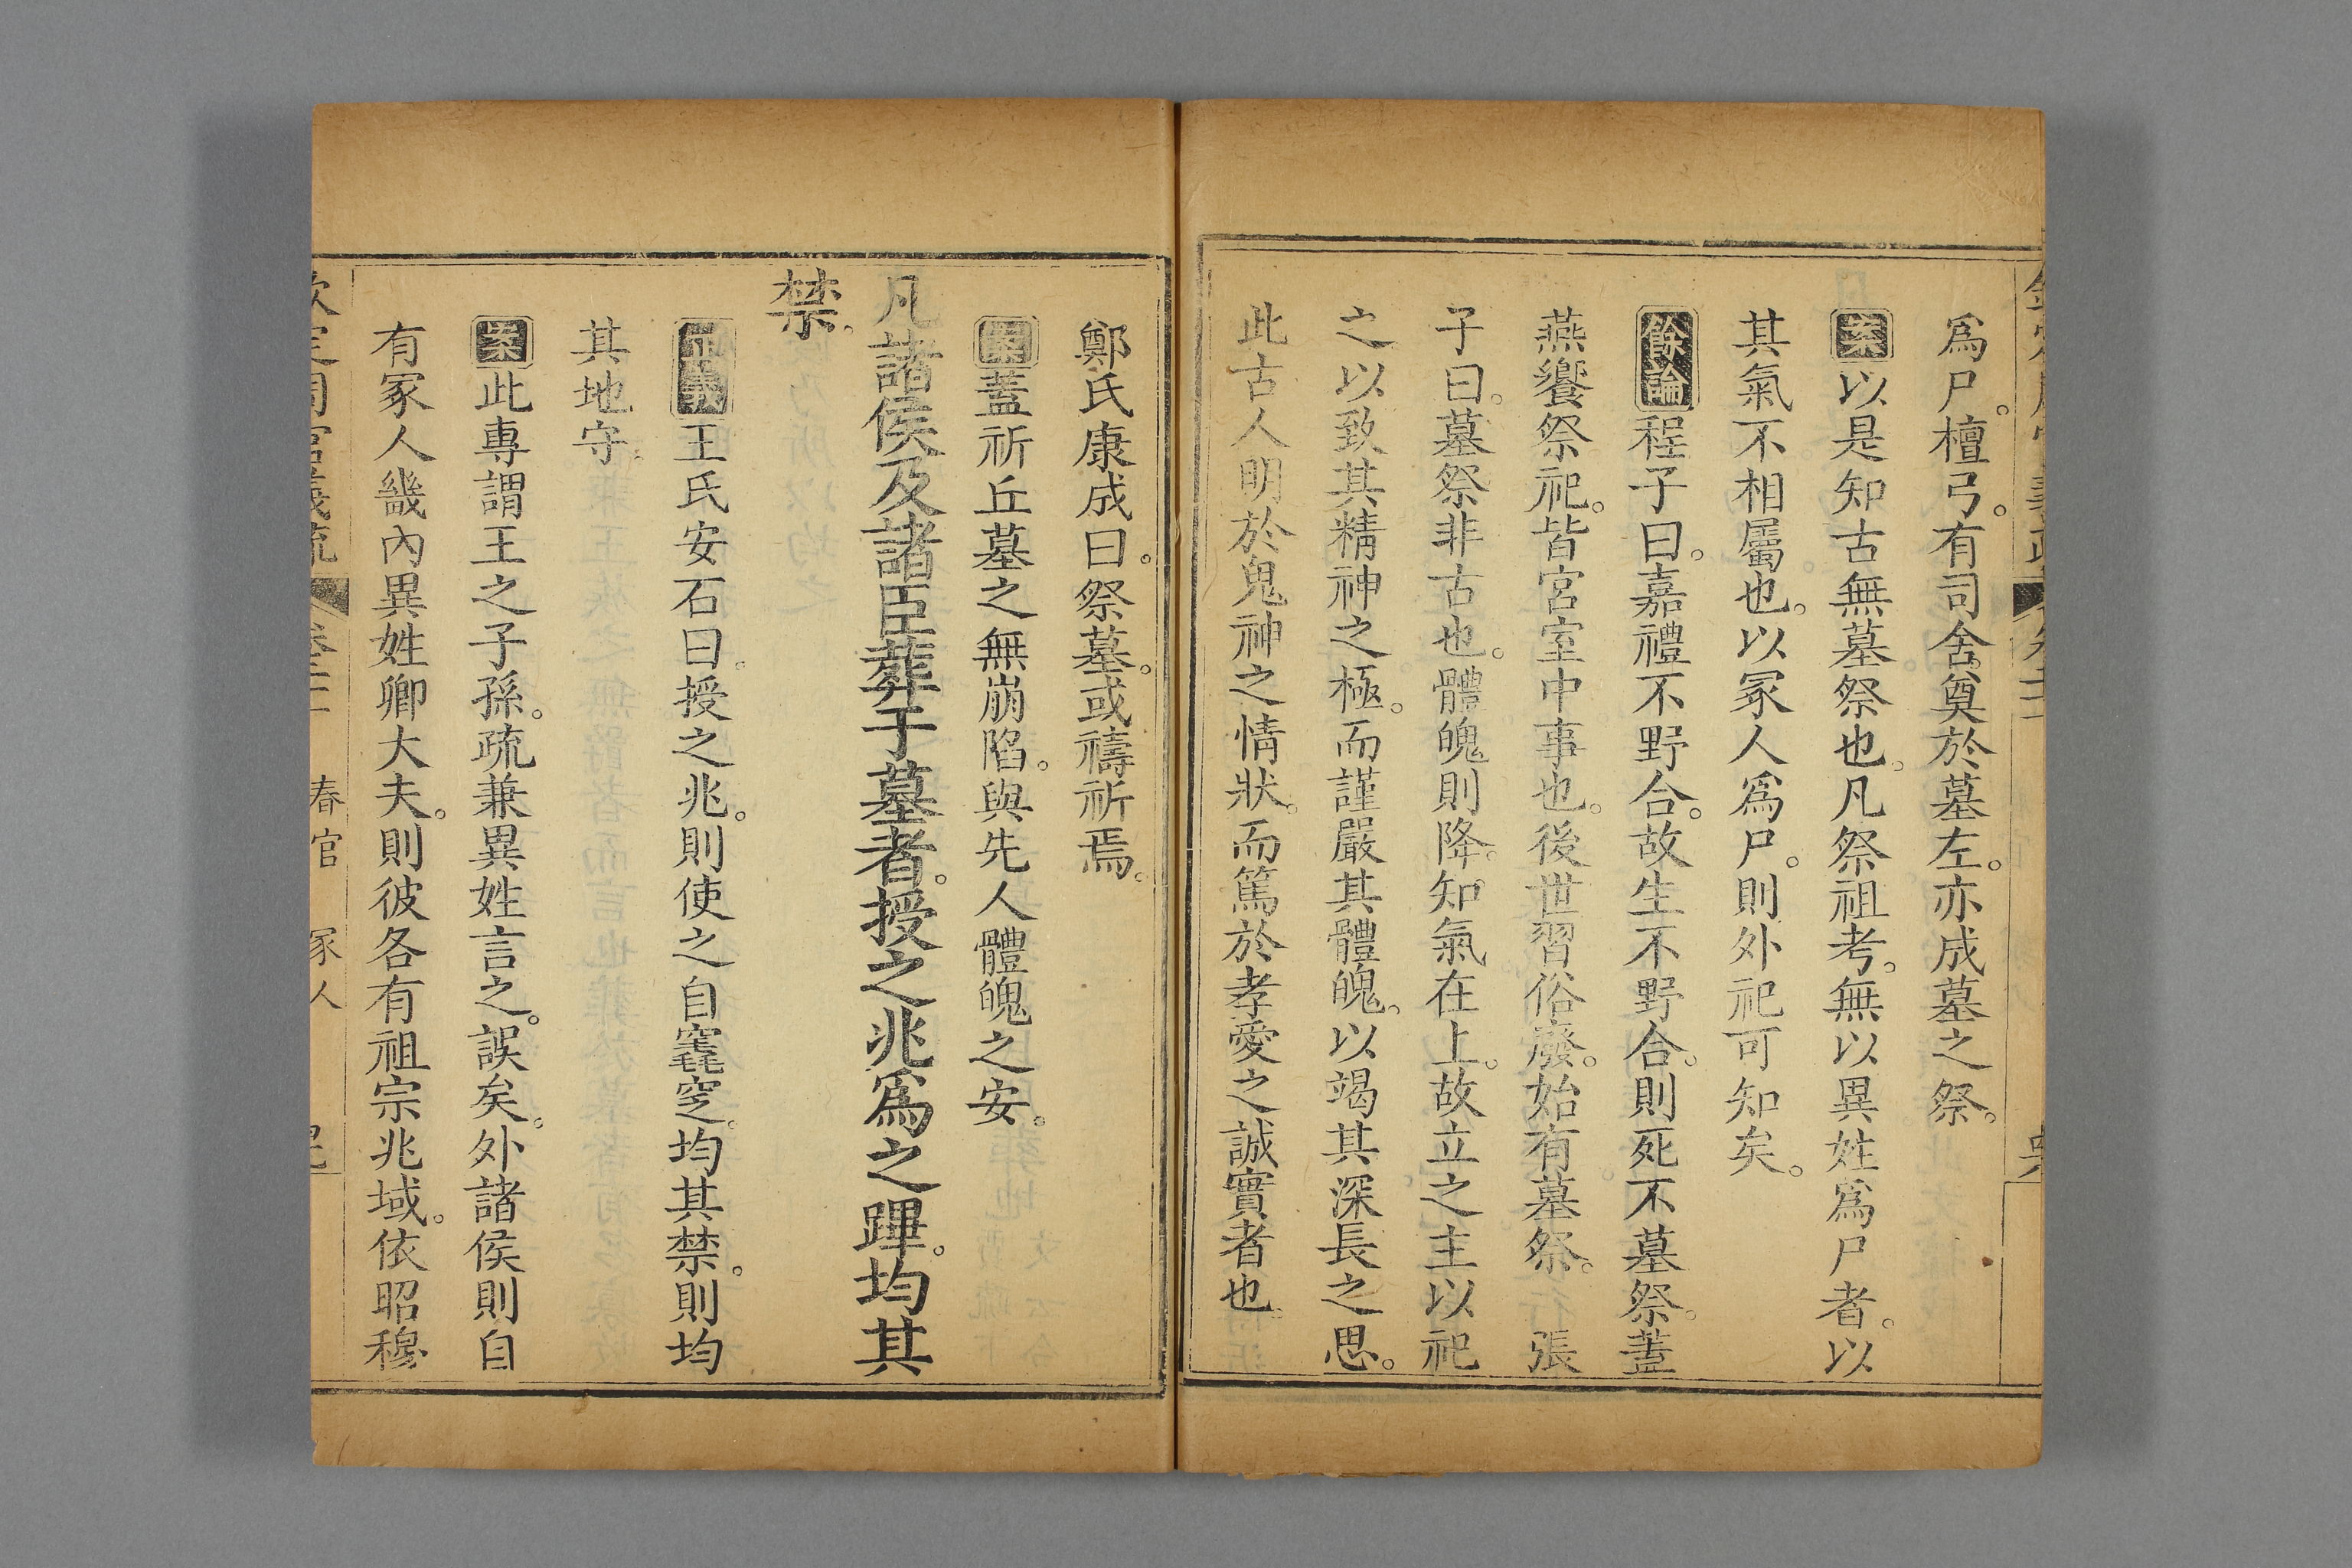 爲尸。檀弓。有司舍奠於墓左。亦成墓之祭。
案以是知古無墓祭也。凡祭祖考。無以異姓爲尸者。以
其氣不相屬也。以冢人爲尸。則外祀可知矣。
餘論程子曰。嘉禮不野合。故生不野合。則死不墓祭。蓋
燕饗祭祀。皆宮室中事也。後世習俗廢。始有墓祭。 張
子曰。墓祭非古也。體魄則降。知氣在上。故立之主以祀
之以致其精神之極。而謹嚴其體魄。以竭其深長之思。
此古人明於鬼神之情狀。而篤於孝愛之誠實者也。
鄭氏康成曰。祭墓。或禱祈焉。
案蓋祈丘墓之無崩陷。與先人體魄之安。
凡諸侯及諸臣葬于墓者。授之兆爲之蹕。均其
禁。
正義王氏安石曰。授之兆。則使之自竁窆。均其禁。則均
其地守。
案此專謂王之子孫。疏兼異姓言之。誤矣。外諸侯則自
有冢人畿內異姓卿大夫。則彼各有祖宗兆域。依昭穆
欽定周官義疏 卷二 春官 冢人